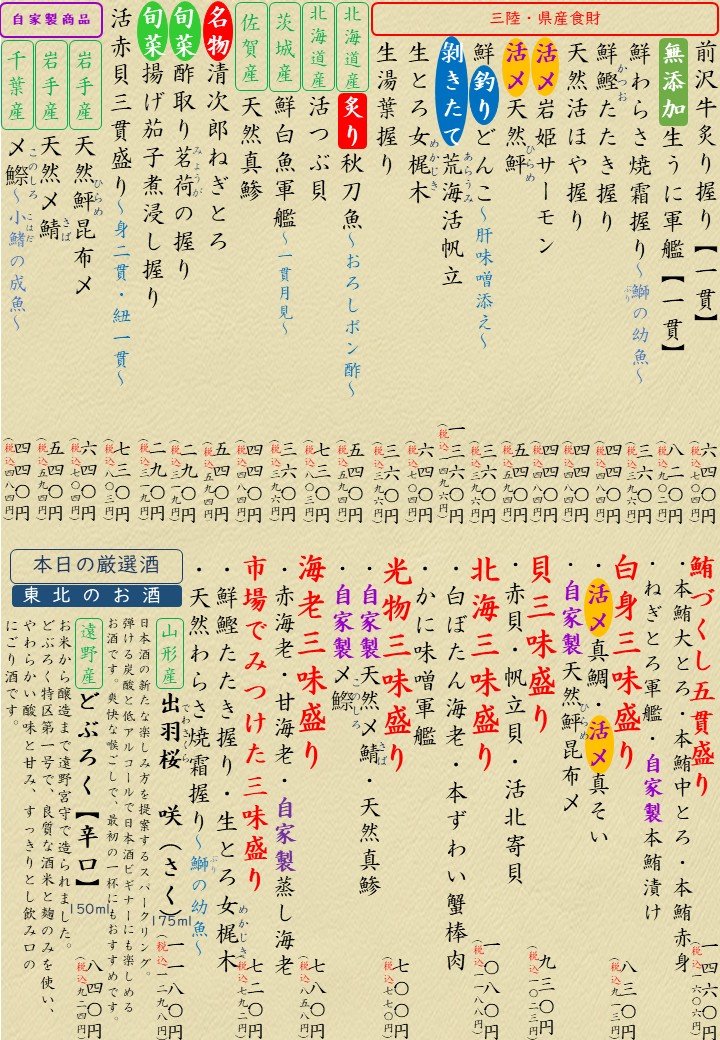 三陸・県産食財
前沢牛炙り握り【一貫】 六四〇円
(税込七〇四円)
無添加 生うに軍艦【一貫】 八二〇円
(税込九〇二円)
鮮わらさ焼霜握り～鰤の幼魚～ 三六〇円
ぶり
(税込三九六円)
鮮鰹たたき握り 四四〇円
かつお
(税込四八四円)
天然活ほや握り 四四〇円
(税込四八四円)
活〆 岩姫サーモン 四四〇円
(税込四八四円)
活〆 天然鮃 五四〇円
ひらめ
(税込五九四円)
鮮 釣り どんこ～肝味噌添え～ 三六〇円
(税込三九六円)
剝きたて 荒海活帆立 一三六〇円
あらうみ
(税込一四九六円)
生とろ女梶木 六四〇円
めかじき
(税込七〇四円)
生湯葉握り 三六〇円
(税込三九六円)
北海道産 炙り 秋刀魚～おろしポン酢～ 五四〇円
(税込五九四円)
北海道産 活つぶ貝 七三〇円
(税込八〇三円)
茨城産 鮮白魚軍艦～一貫月見～ 三六〇円
(税込三九六円)
佐賀産 天然真鯵 四四〇円
(税込四八四円)
名物 清次郎ねぎとろ 五四〇円
(税込五九四円)
旬菜 酢取り茗荷の握り 二九〇円
みょうが
(税込三一九円)
旬菜 揚げ茄子煮浸し握り 二九〇円
(税込三一九円)
活赤貝三貫盛り～身二貫・紐一貫～ 七三〇円
(税込八〇三円)
自家製商品
岩手産 天然鮃昆布〆 六四〇円
ひらめ
(税込七〇四円)
岩手産 天然〆鯖 五四〇円
さば
(税込五九四円)
千葉産 〆鰶～小鰭の成魚～ 四四〇円
このしろ こはだ
(税込四八四円)
鮪づくし五貫盛り
・本鮪大とろ・本鮪中とろ・本鮪赤身 一四六〇円
(税込一六〇六円)
・ねぎとろ軍艦・自家製本鮪漬け
白身三味盛り 八三〇円
(税込九一三円)
・活〆真鯛・活〆真そい
・自家製天然鮃昆布〆
ひらめ
貝三味盛り 九三〇円
(税込一〇二三円)
・赤貝・帆立貝・活北寄貝
北海三味盛り 一〇八〇円
(税込一一八八円)
・白ぼたん海老・本ずわい蟹棒肉
・かに味噌軍艦
光物三味盛り 七〇〇円
(税込七七〇円)
・自家製天然〆鯖・天然真鯵
さば
・自家製〆鰶
このしろ
海老三味盛り 七八〇円
(税込八五八円)
・赤海老・甘海老・自家製蒸し海老
市場でみつけた三味盛り 七二〇円
(税込七九二円)
・鮮鰹たたき握り・生とろ女梶木
めかじき
・天然わらさ焼霜握り～鰤の幼魚～
ぶり
本日の厳選酒
東北のお酒
山形産 出羽桜 咲（さく） 175ml 一一八〇円
でわざくら
(税込一二九八円)
日本酒の新たな楽しみ方を提案するスパークリング。
弾ける炭酸と低アルコールで日本酒ビギナーにも楽しめる
お酒です。爽快な喉ごしで、最初の一杯にもおすすめです。
遠野産 どぶろく【辛口】 150ml 八四〇円
(税込九二四円)
お米から醸造まで遠野宮守で造られました。
どぶろく特区第一号で、良質な酒米と麹のみを使い、
やわらかい酸味と甘み、すっきりとし飲み口の
にごり酒です。